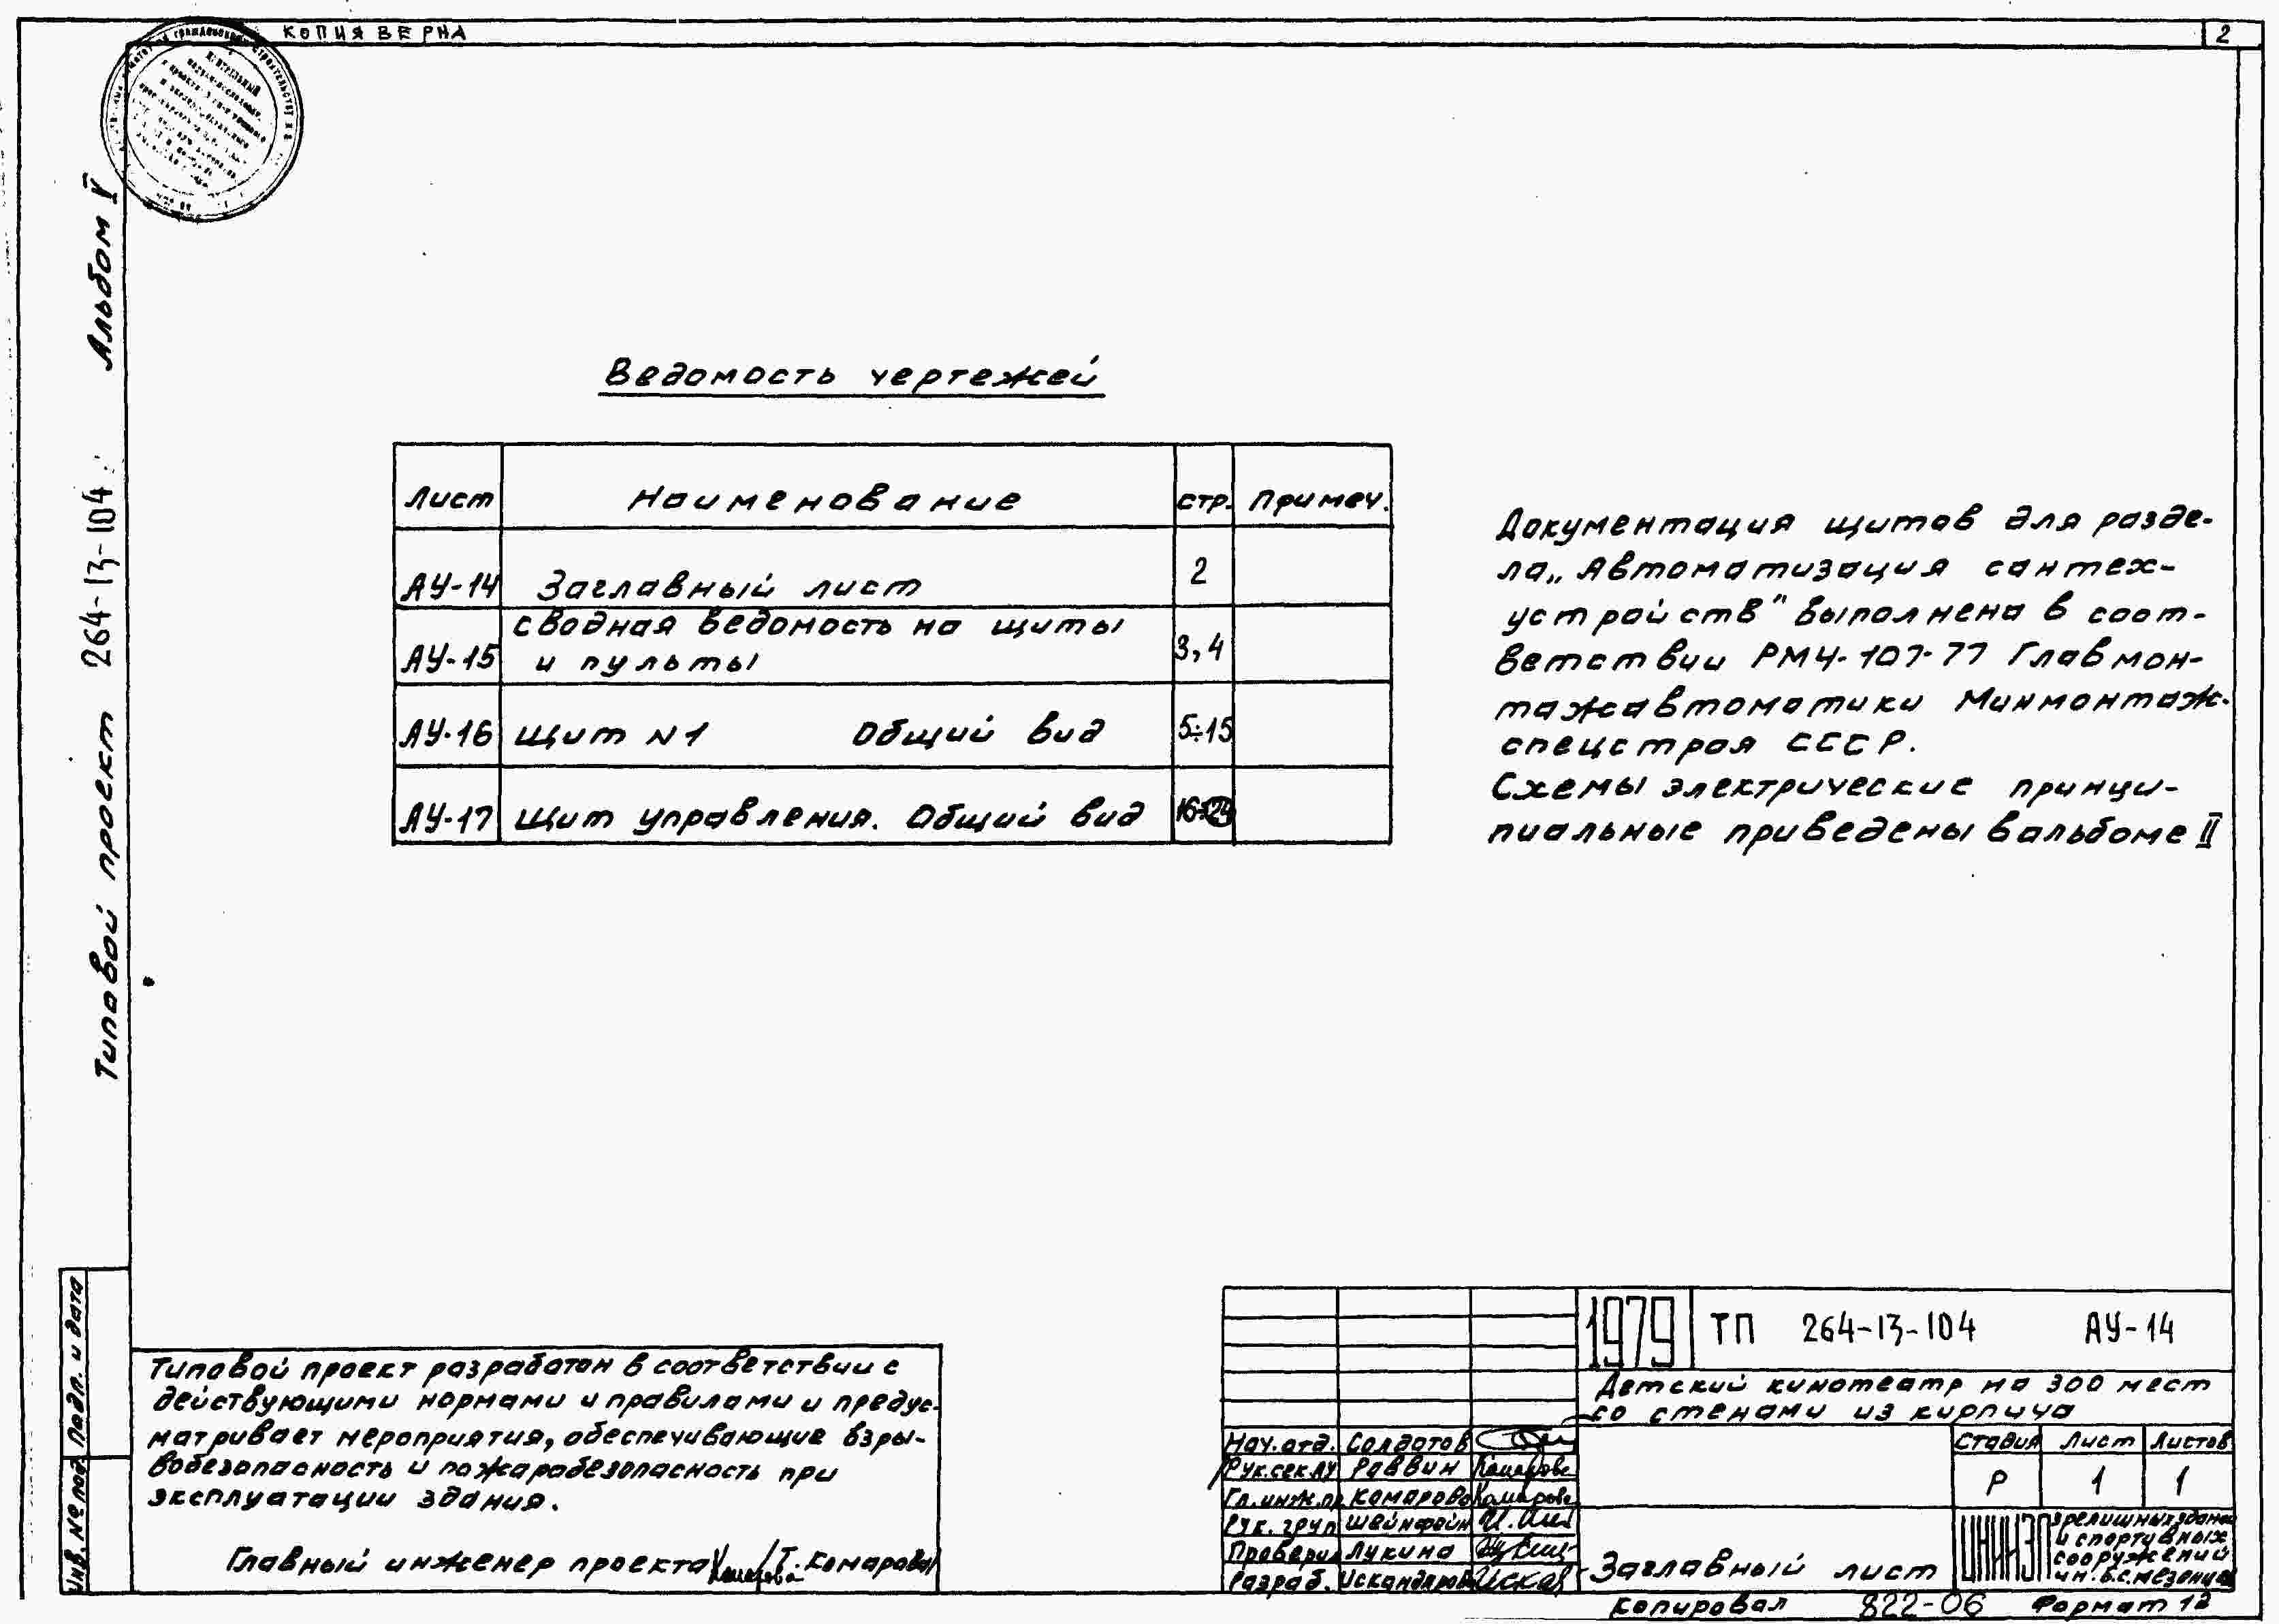 КОПИЯ ВЕРНА
2
Альбом V
Типовой проект 264-13-104
Ведомость чертежей
Лист Наименование стр. Примеч.
АУ-14 Заглавный лист 2
АУ-15 сводная ведомость на щиты
и пульты 3,4
АУ-16 Щит N1 Общий вид 5÷15
АУ-17 Щит управления. Общий вид 16÷24
Документация щитов для разде-
ла „Автоматизация сантех-
устройств" выполнена в соот-
ветствии РМ4-107-77 Главмон-
тажавтоматики Минмонтаж-
спецстроя СССР.
Схемы электрические принци-
пиальные приведены в альбоме II
Типовой проект разработан в соответствии с
действующими нормами и правилами и предус-
матривает мероприятия, обеспечивающие взры-
вобезопасность и пожаробезопасность при
эксплуатации здания.
Главный инженер проекта /Т. Комарова/
Инв. № под. Подп. и дата
1979 ТП 264-13-104 АУ-14
Детский кинотеатр на 300 мест
со стенами из кирпича
Нач. отд. Солдатов
Рук. сек. АУ Раввин
Гл. инж. пр. Комарова
Рук. груп Шейнфейн
Проверил Лукина
Разраб. Искандяров
Стадия Лист Листов
Р 1 1
Заглавный лист
ЦНИИЭП зрелищных зданий
и спортивных
сооружений
им. Б.С. Мезенцева
Копировал 822-06 Формат 12